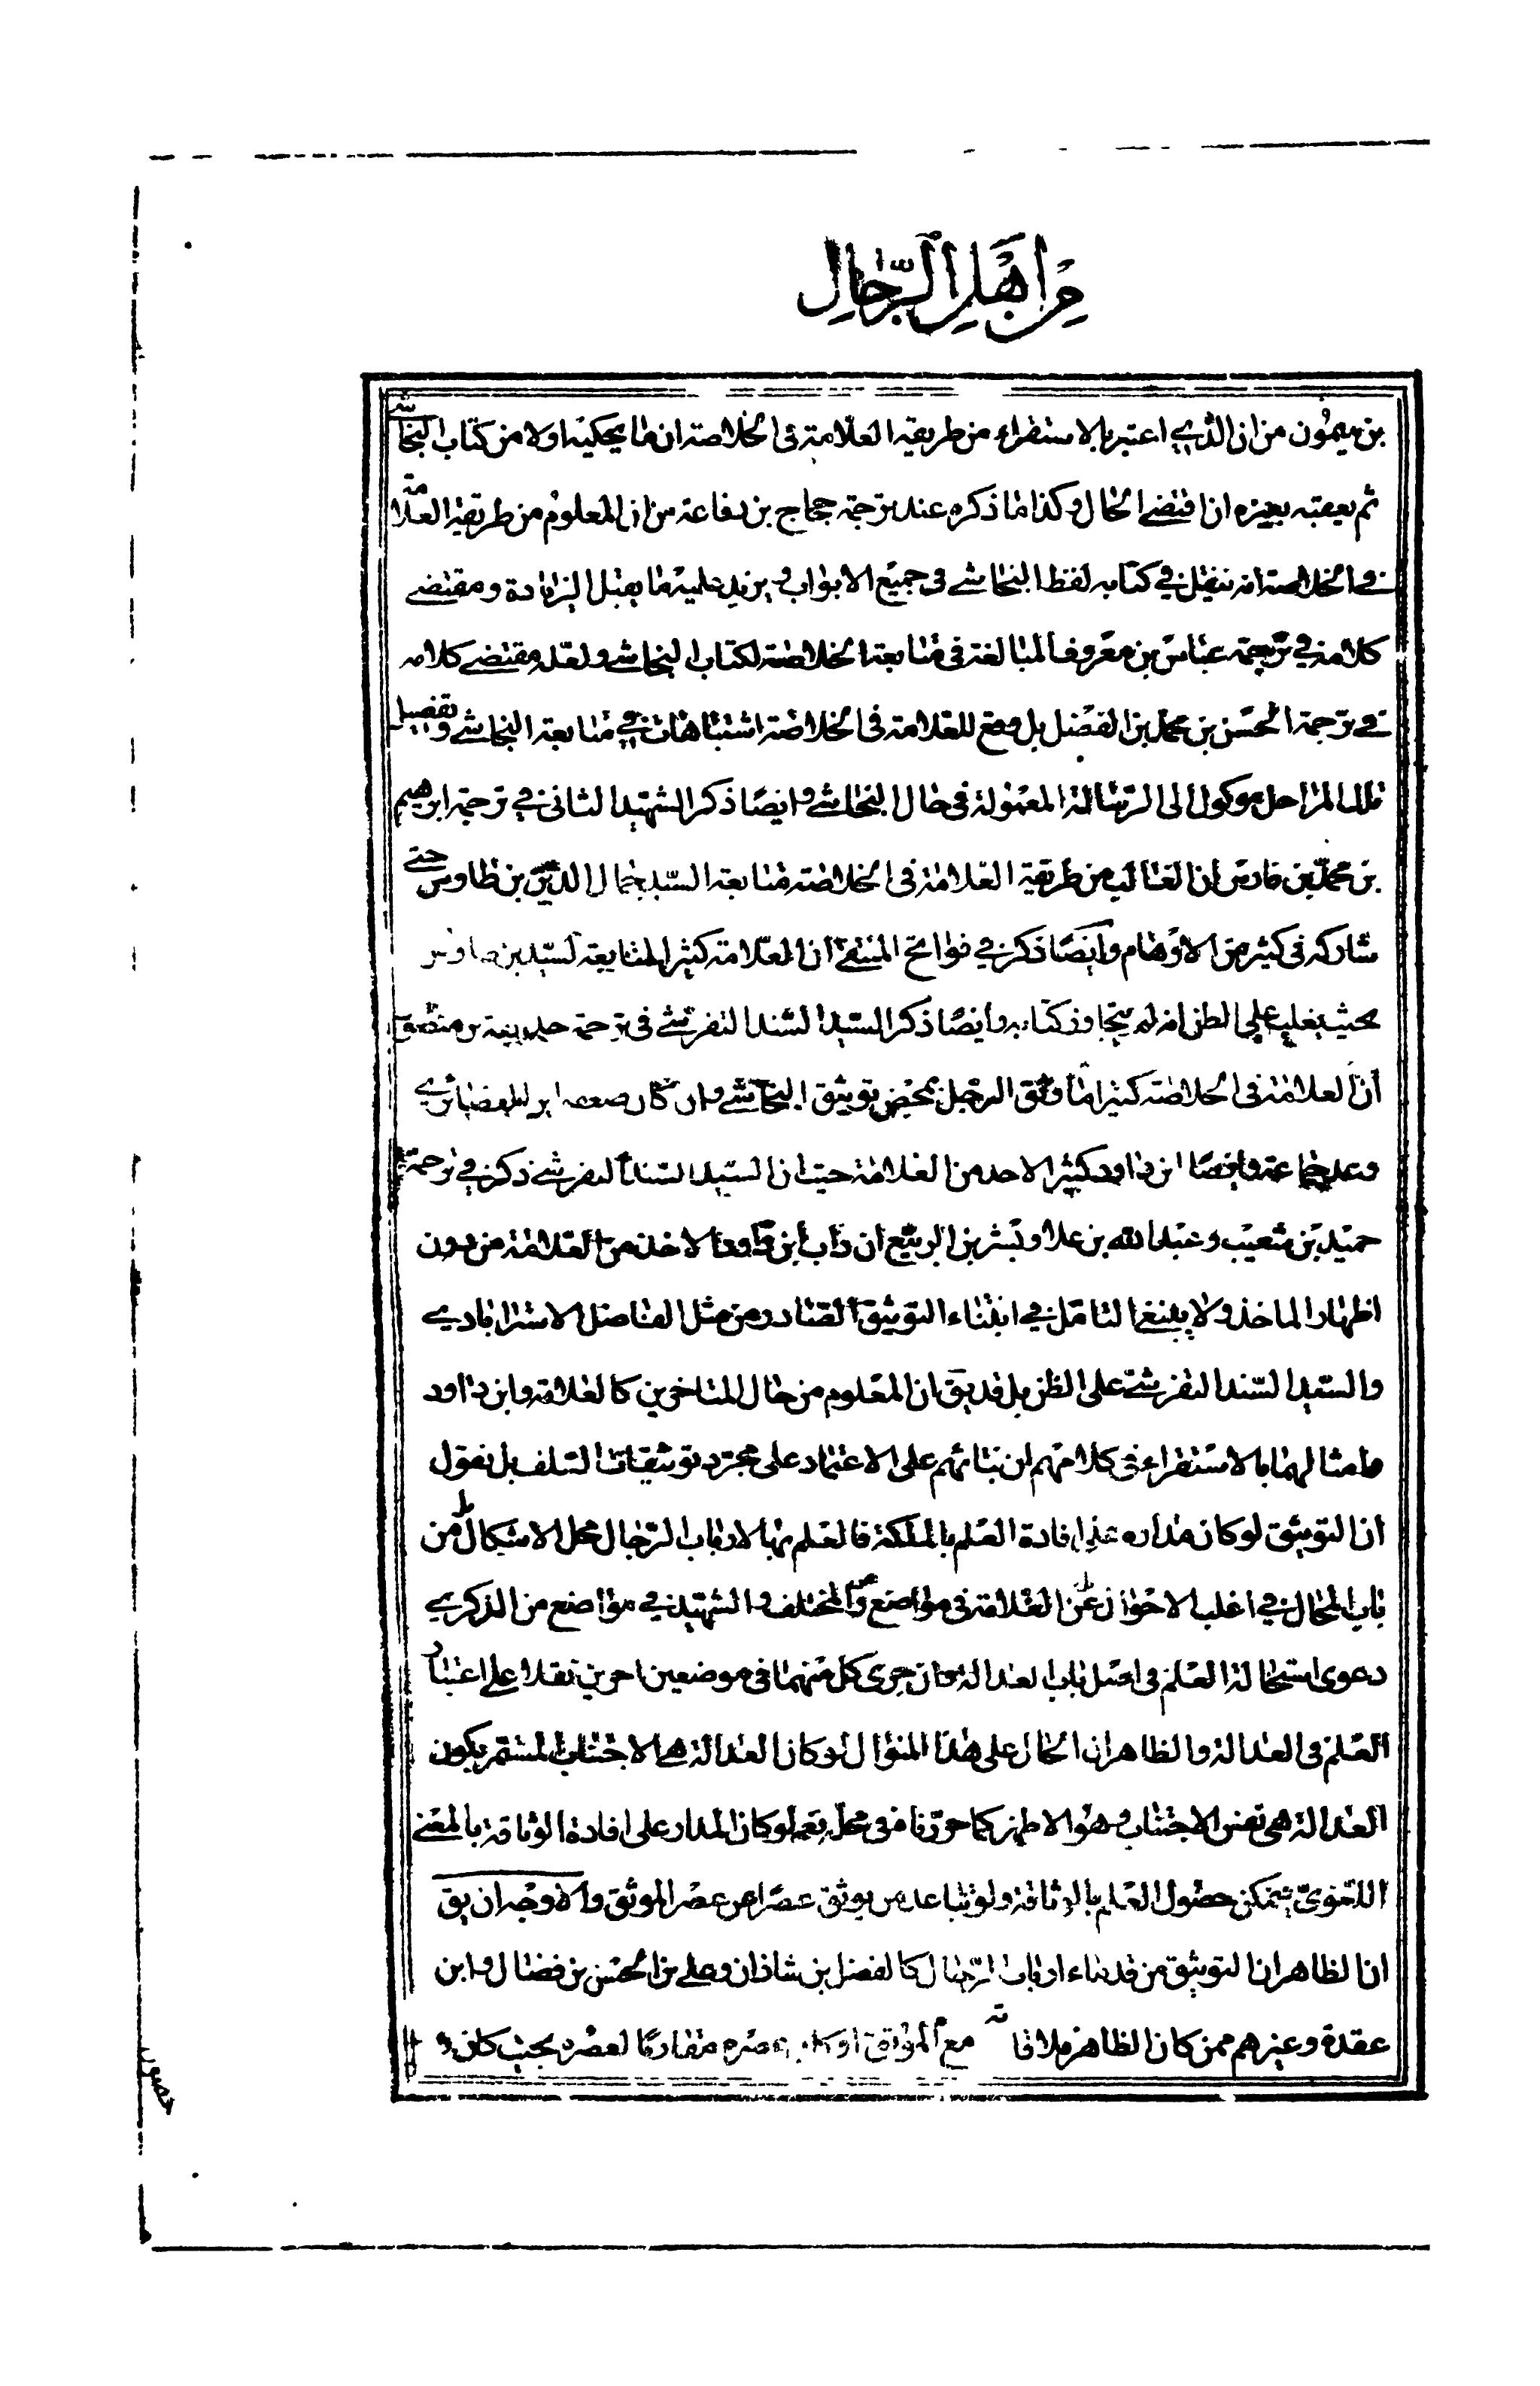 من اهل الرّجال
بن ميمون من ان الذي اعتبر بالاستقراء من طريقة العلّامة في الخلاصة ان ما يحكيه اولا من كتاب النجاشي
ثم يعقبه بغيره ان اقتضى الحال وكذا ما ذكره عند ترجمة حجاج بن رفاعة من ان المعلوم من طريقة العلّامة
في الخلاصة انه ينقل في كتابه لفظ النجاشي في جميع الابواب ويزيد عليه ما يقبل الزيادة ومقتضى
كلامه في ترجمة عباس بن معروف المبالغة في متابعة الخلاصة لكتاب النجاشي ولعله مقتضى كلامه
في ترجمة الحسن بن محمد بن الفضل بل وقع للعلامة في الخلاصة اشتباهات في متابعة النجاشي وتفصيل
تلك المراحل موكول الى الرسالة المعمولة في حال النجاشي وايضا ذكر الشهيد الثاني في ترجمة ابرهيم
بن محمد بن فارس ان الغالب من طريقة العلامة في الخلاصة متابعة السيد جمال الدين بن طاوس حتى
شاركه في كثير من الاوهام وايضا ذكر في فواتح المنتقى ان العلامة كثير المتابعة للسيد بن طاوس
بحيث يغلب على الظن انه لم يتجاوز كتابه وايضا ذكر السيد السند التفرشي في ترجمة حذيفة بن منصور
ان العلامة في الخلاصة كثيرا ما وثق الرجل بمحض توثيق النجاشي وان كان ضعفه ابن الغضائري
وعد جماعة وايضا ابن داود كثير الاخذ من العلامة حيث ان السيد السند التفرشي ذكر في ترجمة
حميد بن شعيب وعبد الله بن علا وبشر بن الربيع ان داب ابن داود الاخذ من العلامة من دون
اظهار الماخذ ولا ينبغي التامل في ابتناء التوثيق الصادر من مثل الفاضل الاسترابادي
والسيد السند التفرشي على الظن بل قد يق ان المعلوم من حال المتاخرين كالعلامة وابن داود
وامثالهما بالاستقراء في كلامهم ان بنائهم على الاعتماد على مجرد توثيقات السلف بل نقول
ان التوثيق لو كان مداره على افادة العلم بالملكة فالعلم بها لارباب الرجال محل الاشكال من
باب المحال في اغلب الاحوال عن العلامة في مواضع من المختلف والشهيد في مواضع من الذكرى
دعوى استحالة العلم في اصل باب العدالة وان جرى كل منهما في موضعين اخرين نقلا على اعتبار
العلم في العدالة والظاهر ان الحال على هذا المنوال لو كان العدالة هي الاجتناب المستمر بكون
العدالة هي نفس الاجتناب وهو الاظهر كما حررناه في محله نعم لو كان المدار على افادة الوثاقة بالمعنى
اللغوي يتمكن حصول العلم بالوثاقة ولو تباعد من يوثق عصرا من عصر الموثق والاوجه ان يق
ان الظاهر ان التوثيق من قدماء ارباب الرجال كالفضل بن شاذان وعلي بن الحسن بن فضال وابن
عقدة وغيرهم ممن كان الظاهر ملاقاته مع الموثق او كان عصره مقاربا لعصره بحيث كان